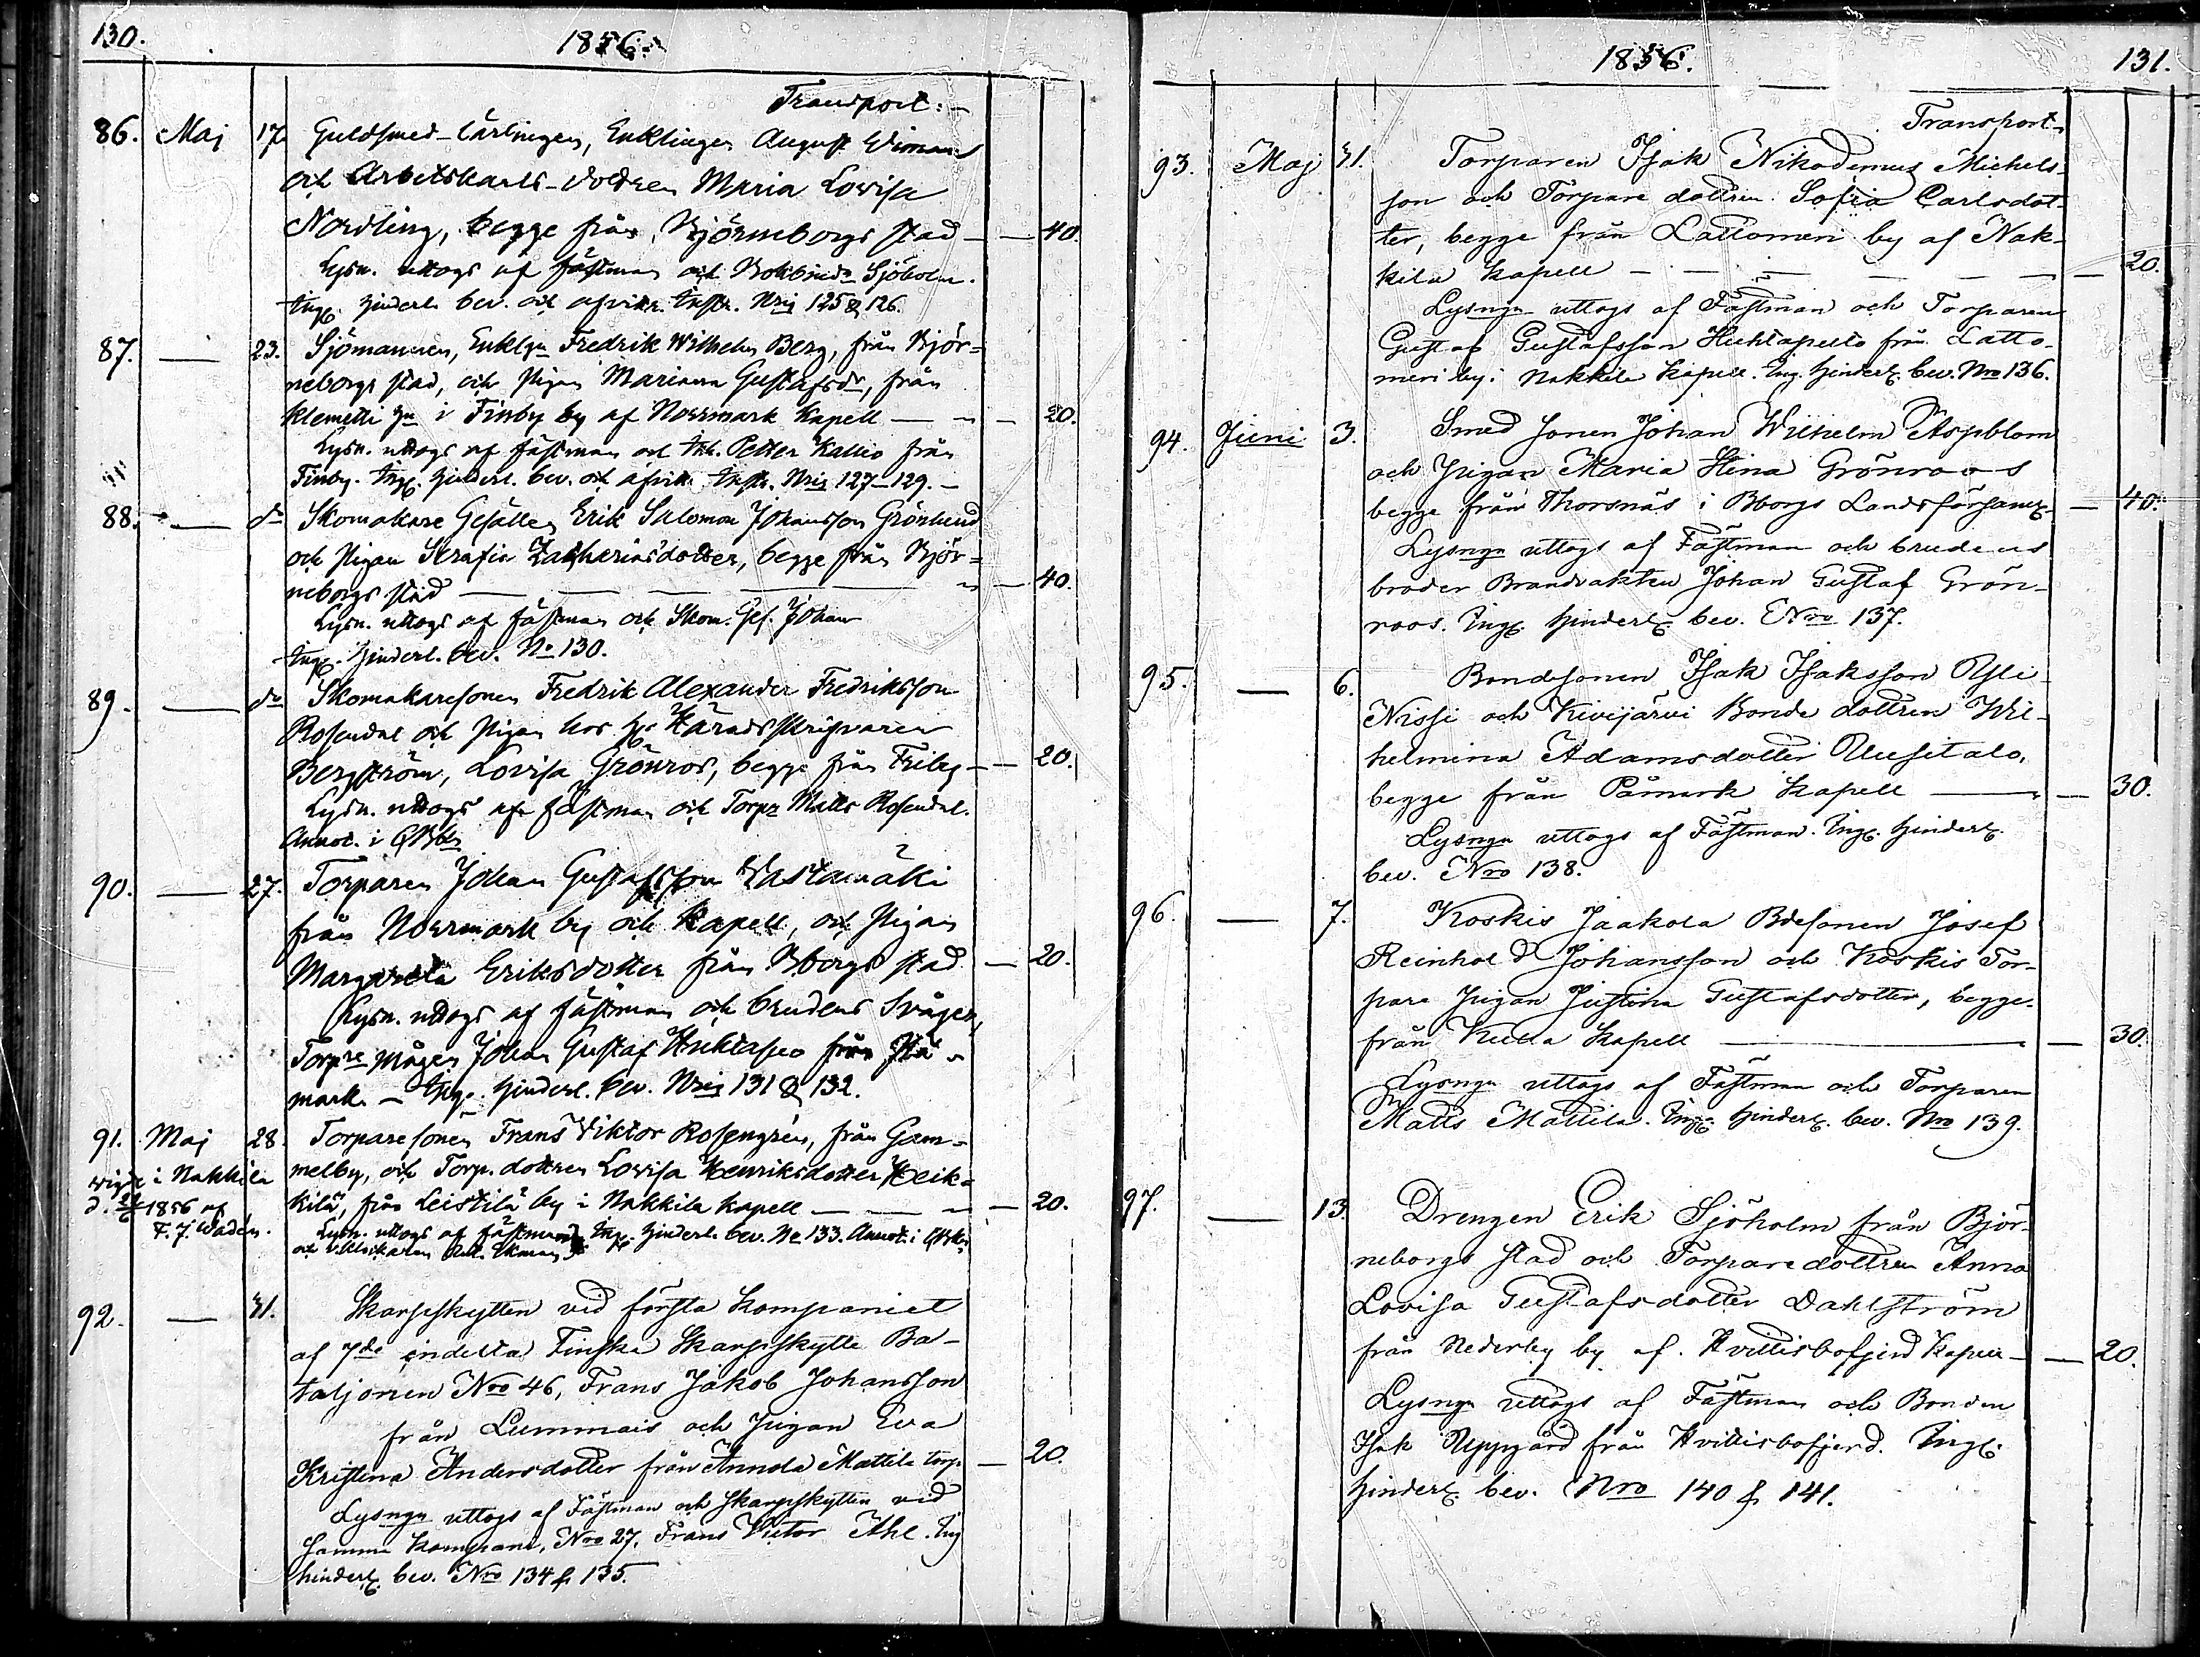 130.
1856.
Transport.
86. Maj 17. Guldsmed-lärlingen, Enklingen August Wiman
och Arbetskarls-dottren Maria Lovisa
Nordling, begge från Björneborgs stad — 40.
Lysn. uttogs af fästman och Bokbind. Sjöholm.
Ing. hinderl. bev. och afvitt. Nris 125 & 126.
87. — 23. Sjömannen, Enklgn Fredrik Wilhelm Berg, från Björ=
neborgs stad, och pigan Mariana Gustafsdr, från
Klemetti i Finby by af Norrmark Kapell — 20.
Lysn. uttogs af fästman och Petter Kallio från
Finby. Ing. hinderl. bev. och Nris 127-129.
88. — do Skomakare Gesällen Erik Salomon Johansson Grönlund
och Pigan Serafia Zachariasdotter, begge från Björ=
neborgs stad — 40.
Lysn. uttogs af fästman och Skom. Ges. Johan
Ing. hinderl. bev. No 130.
89. — do Skomakaresonen Fredrik Alexander Fredriksson
Rosendal och Pigan hos Hr Häradsskrifvaren
Bergström, Lovisa Grönros, begge från Friby — 20.
Lysn. uttogs af fästman och Torpr Matts Rosendal.
Annot. i
90. — 27. Torparen Johan Gustafsson Vastamäki
från Norrmark by och Kapell, och Pigan
Margareta Eriksdotter från Bborgs stad — 20.
Lysn. uttogs af fästman och brudens Svåger,
Torpre mågen Johan Gustaf från På=
mark. — Ing. hinderl. bev. Nris 131 & 132.
91. Maj 28. Torparesonen Frans Viktor Rosengrén, från Gam=
melby, och Torp. dottren Lovisa Henriksdotter Heik=
kilä, från Leistilä by i Nakkila Kapell — 20.
wigde i Nakkila
d. 1856 af
F. J. Wadén.
Lysn. uttogs af fästman Ing. hinderl. bev. No 133. Annot. i
92. — 31. Skarpskytten vid första Kompaniet
af 7de indelta Finska Skarpskytte Ba-
taljonen Nro 46, Frans Jakob Johansson
från Lummais och Pigan Eva
Kristina Andersdotter från Annola Mattila torp — 20.
Lysngn uttogs af Fästman och Skarpskytten vid
samma Kompani, Nro 27, Frans Victor Ahl. Ing
hinderl. bev. Nro 134 & 135.
1856.
131.
Transport
93. Maj 31. Torparen Isak Nikodemus Michels-
son och Torpare dottren Sofia Carlsdot-
ter, begge från Lattomeri by af Nak-
kila Kapell — 20.
Lysngn uttogs af Fästman och Torparen
Gustaf Gustafsson Huhtapelto från Latto-
meri by i Nakkila Kapell. Ing. hinderl. bev. Nro 136.
94. Juni 3. Smed sonen Johan Wilhelm Aspblom
och Pigan Maria Stina Grönroos
begge från Thorsnäs i Bborgs Landsförsaml. — 40.
Lysngn uttogs af Fästman och brudens
broder Brandvakten Johan Gustaf Grön-
roos. Ing. hinderl. bev. Nro 137.
95. — 6. Bondsonen Isak Isaksson Yli-
Nissi och Kivijärvi Bonde dottren Wil-
helmina Adamsdotter Uusitalo,
begge från Påmark Kapell — 30.
Lysngn uttogs af Fästman. Ing. hinderl.
bev. Nro 138.
96. — 7. Koskis Jaakola Bdesonen Josef
Reinhold Johansson och Koskis Tor-
pare Pigan Justina Gustafsdotter, begge
från Kulla Kapell — 30.
Lysngn uttogs af Fästman och Torparen
Matts Mattila. Ing. hinderl. bev. Nro 139.
97. — 13. Drengen Erik Sjöholm från Björ-
neborgs stad och Torparedottren Anna
Lovisa Gustafsdotter Dahlström
från Nederby by af Hvittisbofjerd Kapell — 20.
Lysngn uttogs af Fästman och Bonden
Isak Uppgård från Hvittisbofjerd. Ing.
hinderl. bev. Nro 140 & 141.